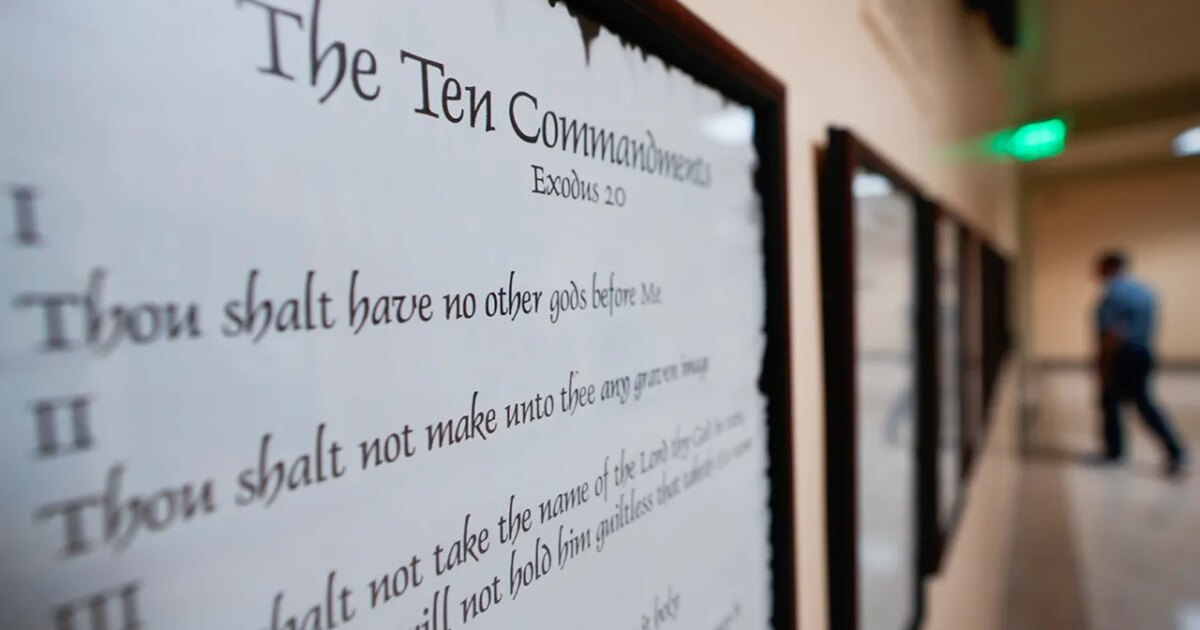 The Ten Commandments
Exodus 20
I
Thou shalt have no other gods before Me
II
Thou shalt not make unto thee any graven image
III
shalt not take the name of the Lord thy God in
will not hold him guiltless that taketh his name
it holy